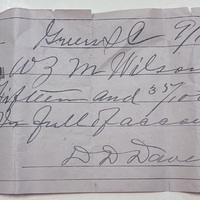 Greer S C 9/1
W Z M Wilson
Fifteen and 35/100
In full of accou
D D Dave